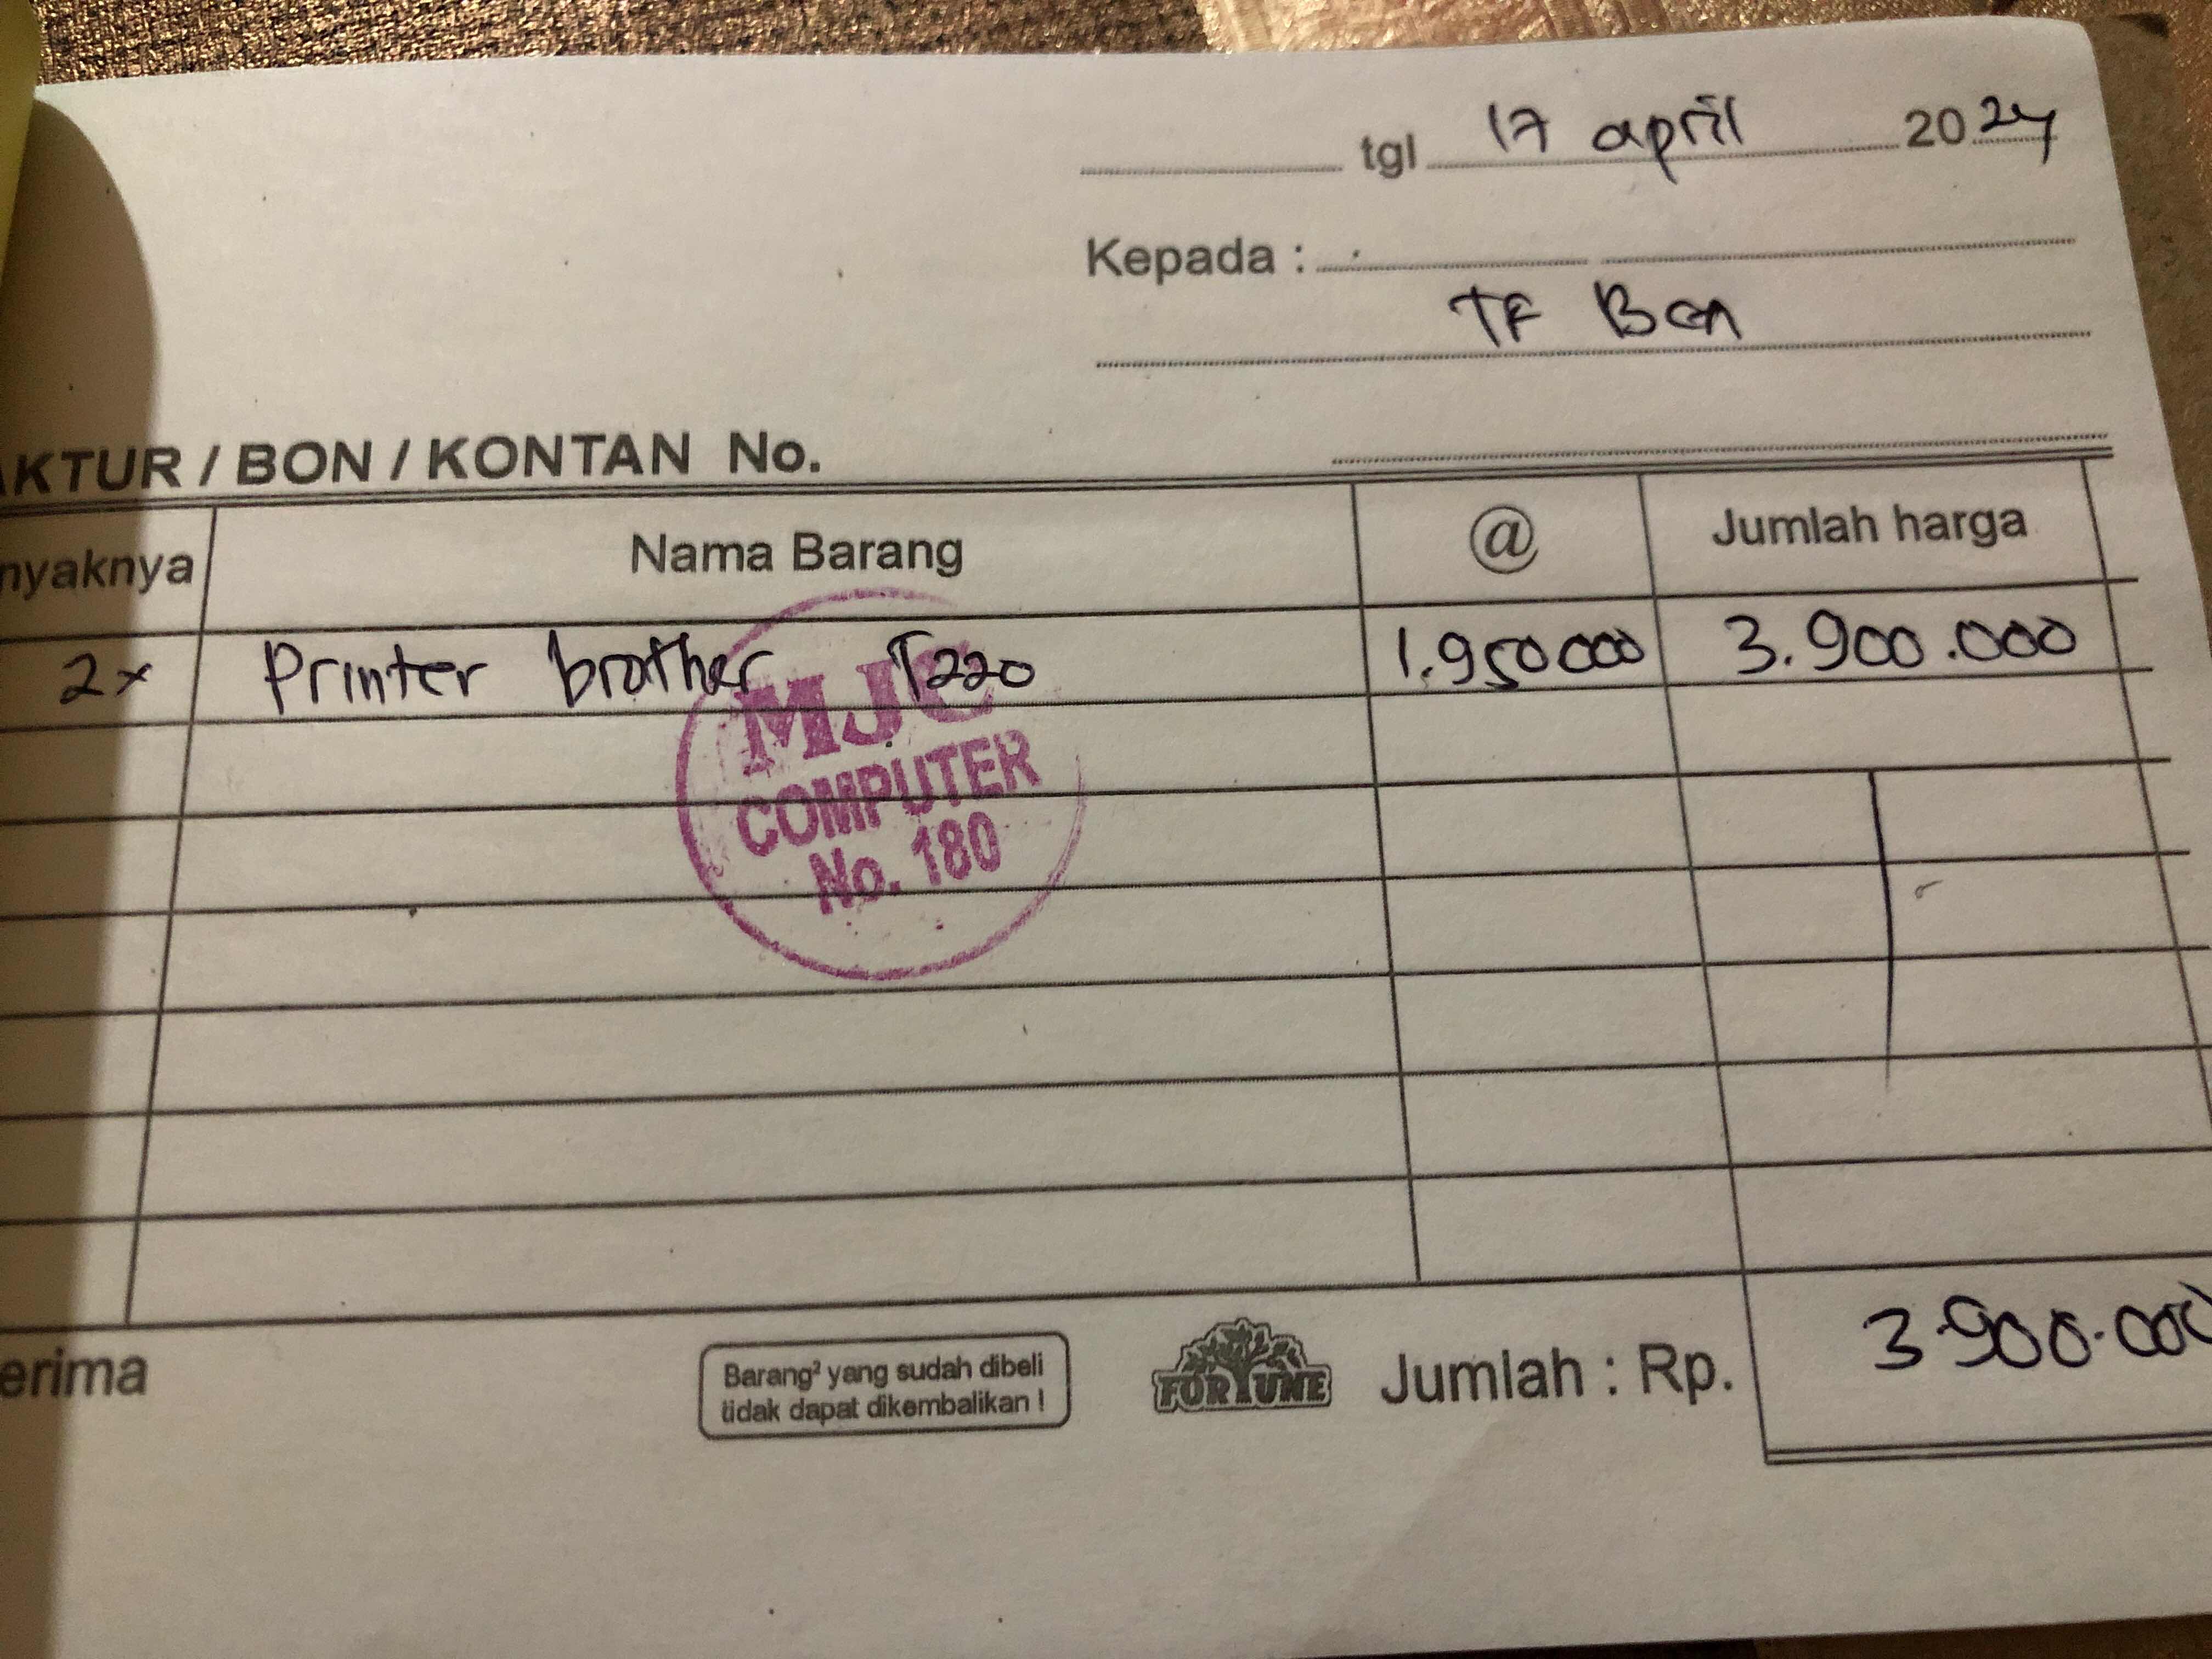 tgl 17 april 2024
Kepada :
TF Bca
AKTUR / BON / KONTAN No.
nyaknya Nama Barang @ Jumlah harga
2x Printer brother T220 1.950000 3.900.000
MJC
COMPUTER
No. 180
erima
Barang² yang sudah dibeli
tidak dapat dikembalikan !
FORTUNE
Jumlah : Rp. 3.900.000